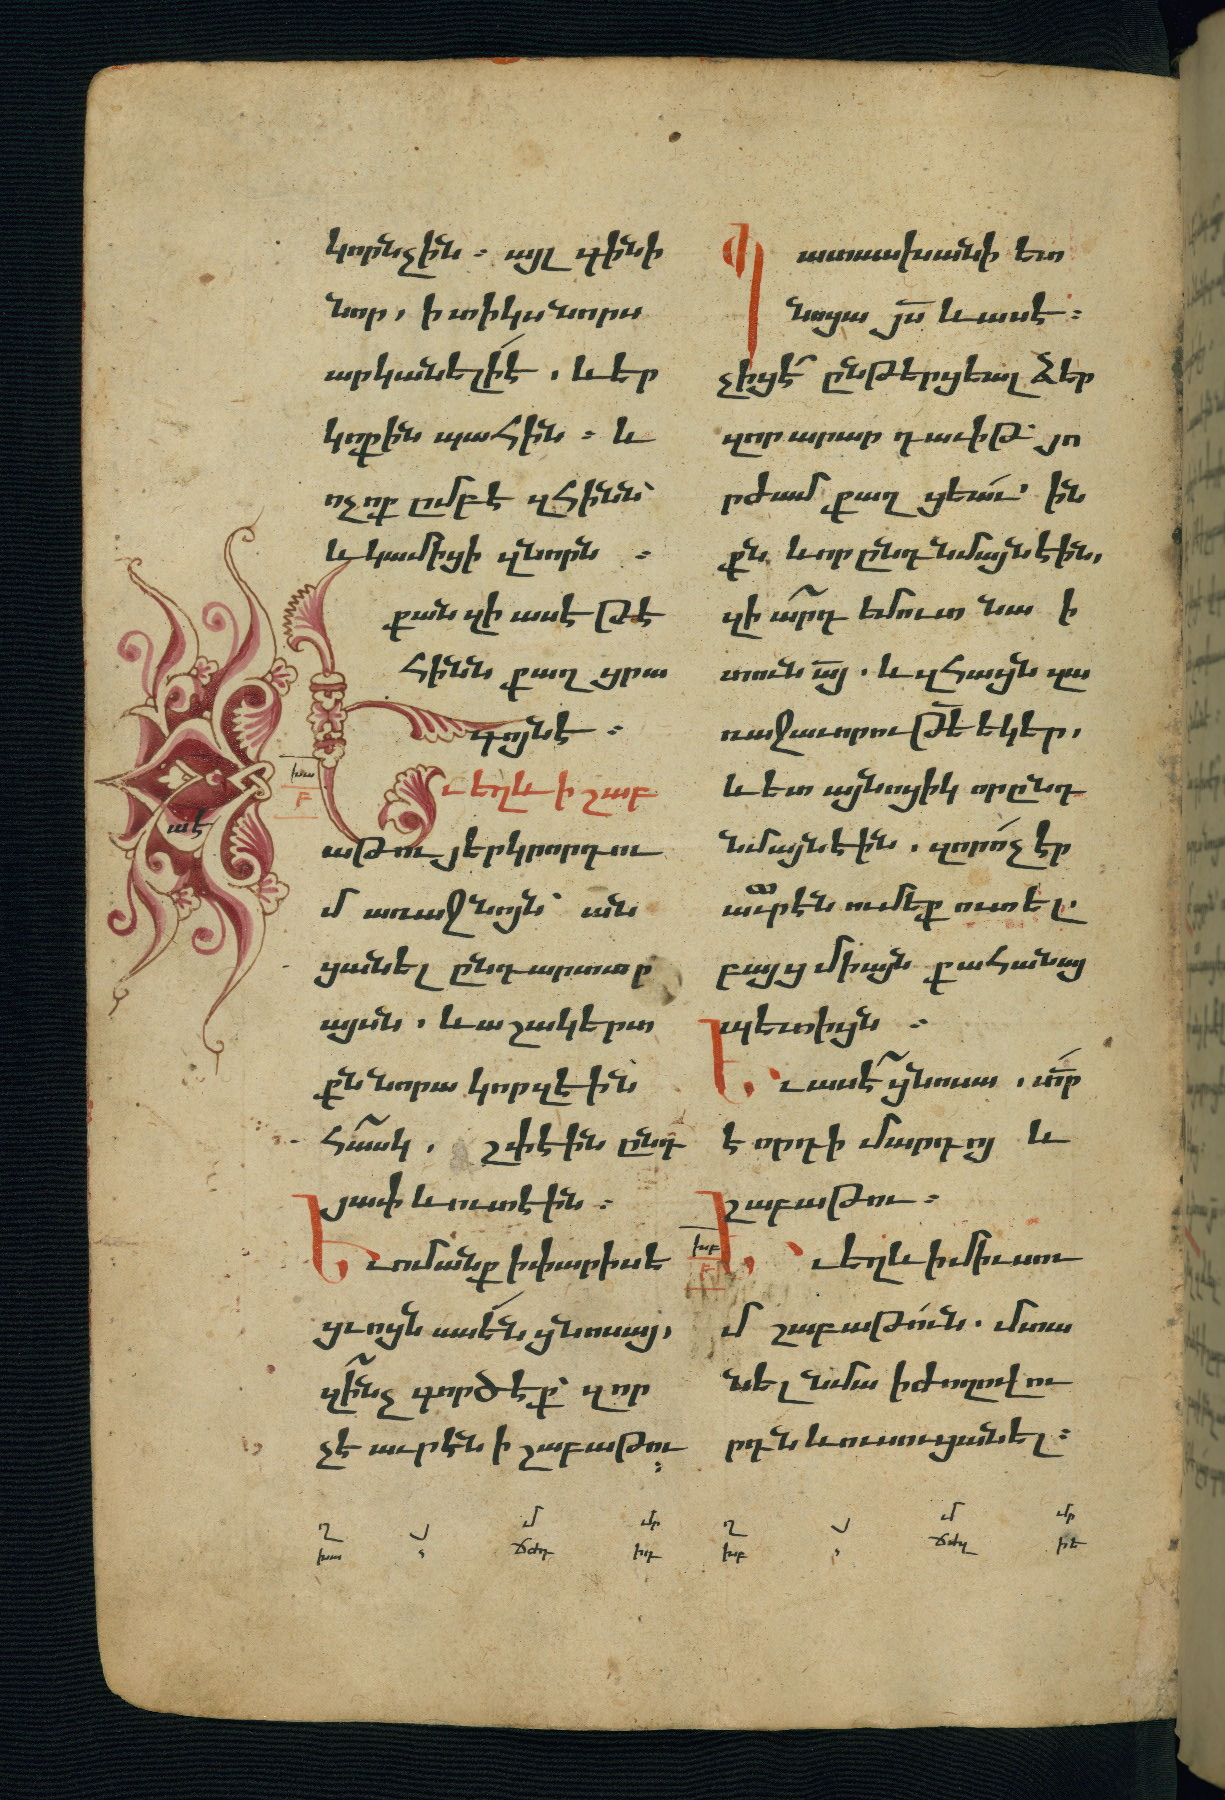 կորնչին ։ այլ գինի
նոր, ի տիկս նորս
արկանելի՛է , և եր
կոքին պահին ։ և
ոչ ոք ըմբէ զհինն՝
և կամիցի զնորն ։
քան զի ասէ թէ
հինն քաղցրա
գոյնէ ։
Եւ եղև ի շաբ
աթու յերկրորդու
մ առաջնոյն՝ ան
ցանել ընդ արտօր
այսն . և աշակերտ
քն նորա կորզէին
հասկ , շփէին ընդ
յափ և ուտէին ։
Եւ ոմանք ի փարիսե
ցւոյն ասե՛ն ցնոսայ,
զի՞նչ գործէք՝ զոր
չէ աւրէն ի շաբաթու ։
խա
բ
աէ
Պատասխանի ետ
նոցա յս և ասէ ։
չիցէ՞ ընթերցեալ ձեր
զոր արար դաւիթ՝ յո
րժամ քաղցեաւ՛ ին
քն և որ ընդ նմայն էին,
զի ա՞րդ եմուտ նա ի
տուն այ . և զհացն զա
ռաջաւորութե եկեր,
և ետ այնոցիկ որ ընդ
նմայն էին . զորո՛չ էր
աւրէն ումեք ուտել.
բայց միայն քահանայ
պետիցն ։
Եւ ասէ՞ ցնոսա , տր
է որդի մարդոյ և
շաբաթու ։
խբ
բ
Եւ եղև ի միւսու
մ շաբաթո՛ւն . մտա
նել նմա ի ժողովու
րդն և ուսուցանել ։
ղ յ մ մր ղ յ մ մր
խա ճժդ խդ խբ ճժզ խե